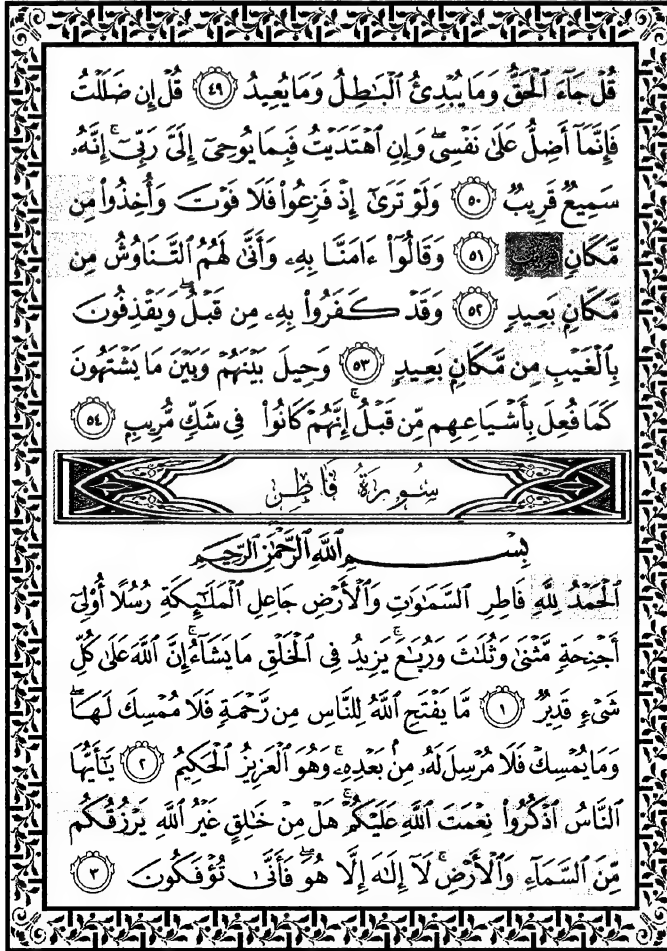 قُلْ جَآءَ ٱلْحَقُّ وَمَا يُبْدِئُ ٱلْبَٰطِلُ وَمَا يُعِيدُ ٤٩ قُلْ إِن ضَلَلْتُ
فَإِنَّمَآ أَضِلُّ عَلَىٰ نَفْسِى ۖ وَإِنِ ٱهْتَدَيْتُ فَبِمَا يُوحِىٓ إِلَىَّ رَبِّىٓ ۚ إِنَّهُۥ
سَمِيعٌ قَرِيبٌ ٥٠ وَلَوْ تَرَىٰٓ إِذْ فَزِعُوا۟ فَلَا فَوْتَ وَأُخِذُوا۟ مِن
مَّكَانٍ قَرِيبٍ ٥١ وَقَالُوٓا۟ ءَامَنَّا بِهِۦ وَأَنَّىٰ لَهُمُ ٱلتَّنَاوُشُ مِن
مَّكَانٍۭ بَعِيدٍ ٥٢ وَقَدْ كَفَرُوا۟ بِهِۦ مِن قَبْلُ ۖ وَيَقْذِفُونَ
بِٱلْغَيْبِ مِن مَّكَانٍۭ بَعِيدٍ ٥٣ وَحِيلَ بَيْنَهُمْ وَبَيْنَ مَا يَشْتَهُونَ
كَمَا فُعِلَ بِأَشْيَاعِهِم مِّن قَبْلُ ۚ إِنَّهُمْ كَانُوا۟ فِى شَكٍّ مُّرِيبٍۭ ٥٤
سُورَةُ فَاطِرٍ
بِسْمِ ٱللَّهِ ٱلرَّحْمَٰنِ ٱلرَّحِيمِ
ٱلْحَمْدُ لِلَّهِ فَاطِرِ ٱلسَّمَٰوَٰتِ وَٱلْأَرْضِ جَاعِلِ ٱلْمَلَٰٓئِكَةِ رُسُلًا أُو۟لِىٓ
أَجْنِحَةٍ مَّثْنَىٰ وَثُلَٰثَ وَرُبَٰعَ ۚ يَزِيدُ فِى ٱلْخَلْقِ مَا يَشَآءُ ۚ إِنَّ ٱللَّهَ عَلَىٰ كُلِّ
شَىْءٍ قَدِيرٌ ١ مَّا يَفْتَحِ ٱللَّهُ لِلنَّاسِ مِن رَّحْمَةٍ فَلَا مُمْسِكَ لَهَا ۖ
وَمَا يُمْسِكْ فَلَا مُرْسِلَ لَهُۥ مِنۢ بَعْدِهِۦ ۚ وَهُوَ ٱلْعَزِيزُ ٱلْحَكِيمُ ٢ يَٰٓأَيُّهَا
ٱلنَّاسُ ٱذْكُرُوا۟ نِعْمَتَ ٱللَّهِ عَلَيْكُمْ ۚ هَلْ مِنْ خَٰلِقٍ غَيْرُ ٱللَّهِ يَرْزُقُكُم
مِّنَ ٱلسَّمَآءِ وَٱلْأَرْضِ ۚ لَآ إِلَٰهَ إِلَّا هُوَ ۖ فَأَنَّىٰ تُؤْفَكُونَ ٣